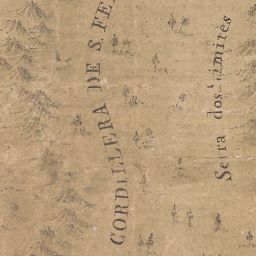 CORDILLERA DE S. FE
Serra dos Limites